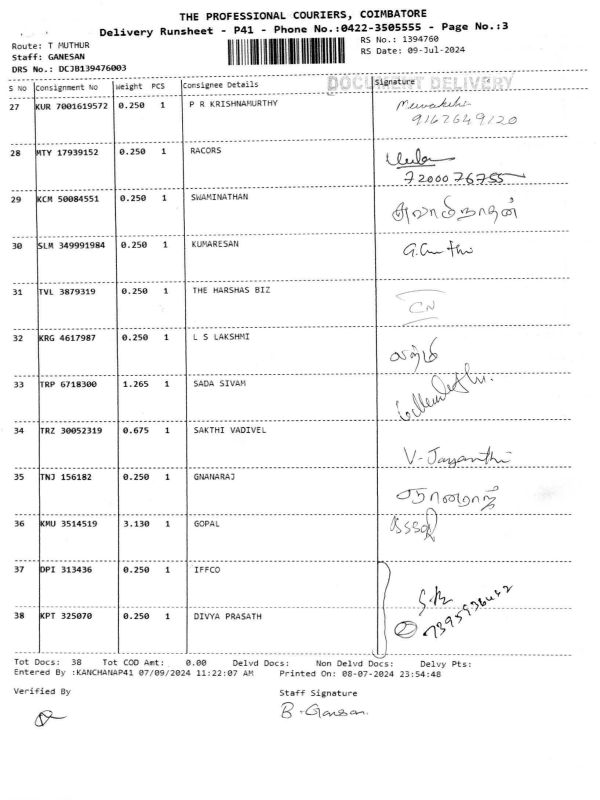 THE PROFESSIONAL COURIERS, COIMBATORE
Delivery Runsheet - P41 - Phone No.:0422-3505555 - Page No.:3
Route: T MUTHUR
RS No.: 1394760
Staff: GANESAN
RS Date: 09-Jul-2024
DRS No.: DCJB139476003
DOCUMENT DELIVERY
S NO Consignment No Weight PCS Consignee Details Signature
27 KUR 7001619572 0.250 1 P R KRISHNAMURTHY
9167649120
28 MTY 17939152 0.250 1 RACORS
7200076755
29 KCM 50084551 0.250 1 SWAMINATHAN
30 SLM 349991984 0.250 1 KUMARESAN
31 TVL 3879319 0.250 1 THE HARSHAS BIZ
CN
32 KRG 4617987 0.250 1 L S LAKSHMI
33 TRP 6718300 1.265 1 SADA SIVAM
34 TRZ 30052319 0.675 1 SAKTHI VADIVEL
V-Jayanthi
35 TNJ 156182 0.250 1 GNANARAJ
36 KMU 3514519 3.130 1 GOPAL
37 DPI 313436 0.250 1 IFFCO
38 KPT 325070 0.250 1 DIVYA PRASATH
Tot Docs: 38 Tot COD Amt: 0.00 Delvd Docs: Non Delvd Docs: Delvy Pts:
Entered By :KANCHANAP41 07/09/2024 11:22:07 AM Printed On: 08-07-2024 23:54:48
Verified By
Staff Signature
B-Ganesan.